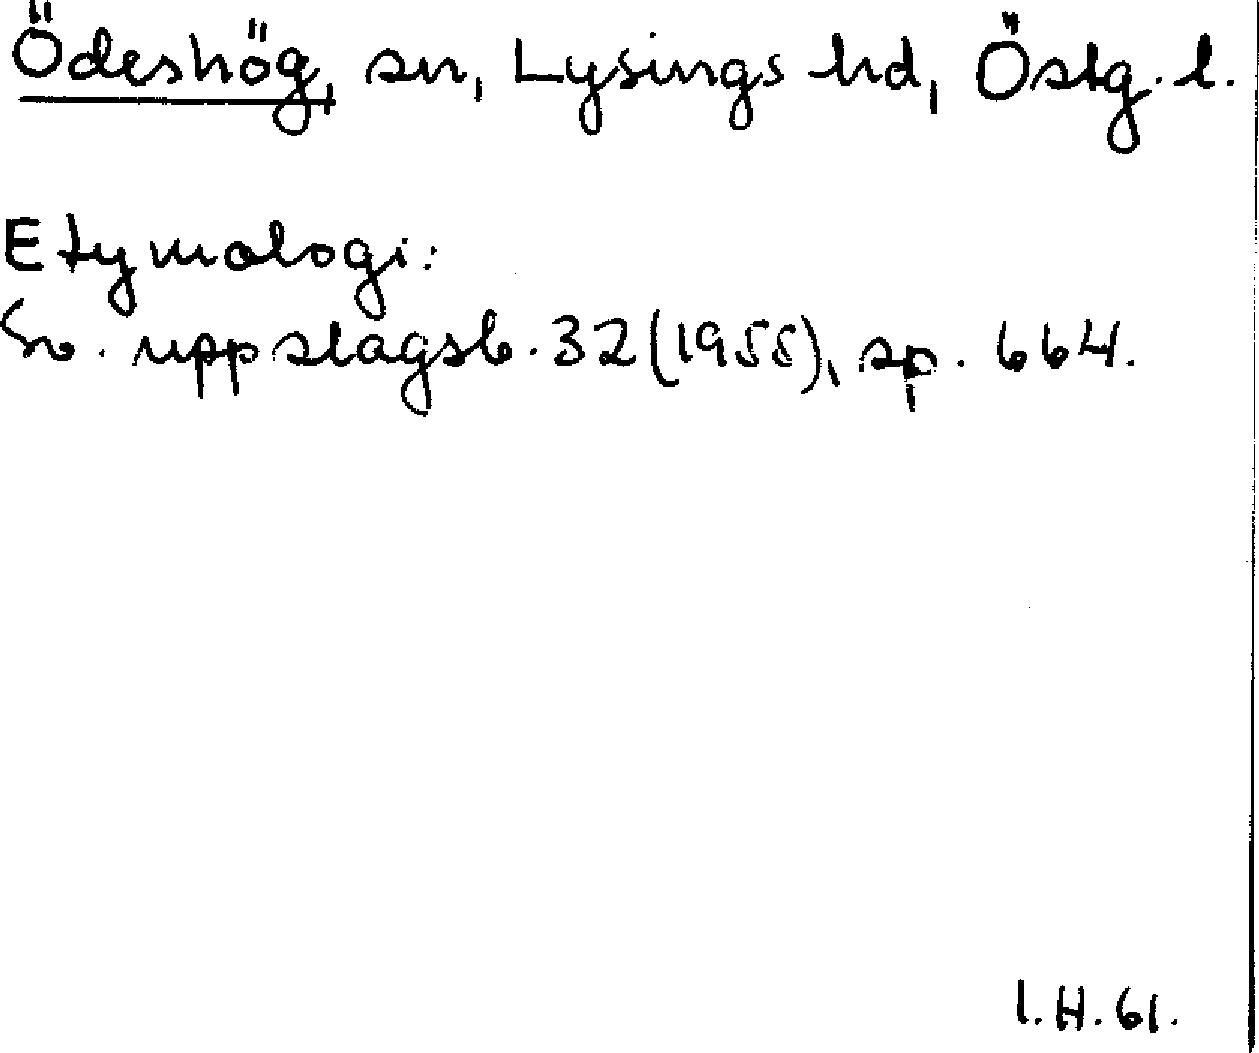 Ödeshög, sn, Lysings hd, Östg. l.
Etymologi:
Sv. uppslagsb. 32 (1955), sp. 664.
I.H. 61.